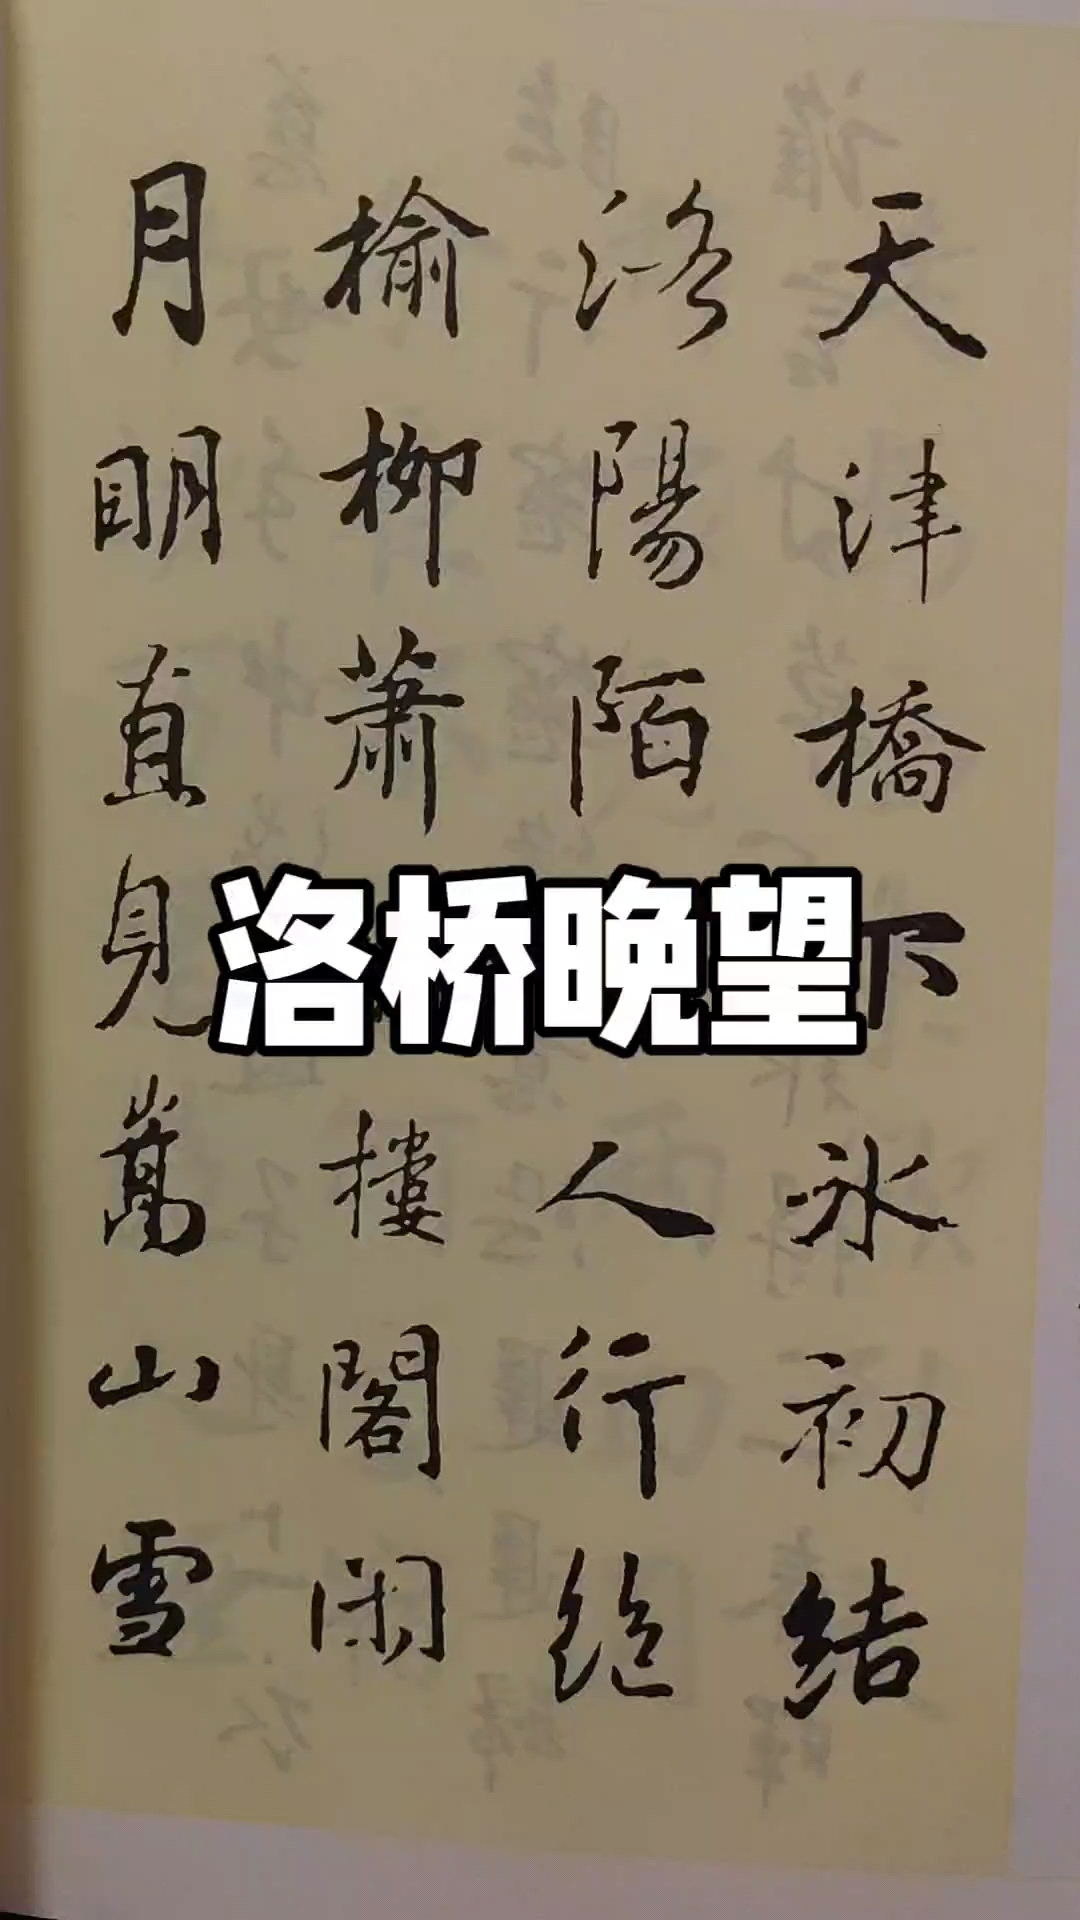 天津橋下冰初結
洛陽陌人行絕
榆柳蕭樓閣閑
月明直見嵩山雪
洛桥晚望